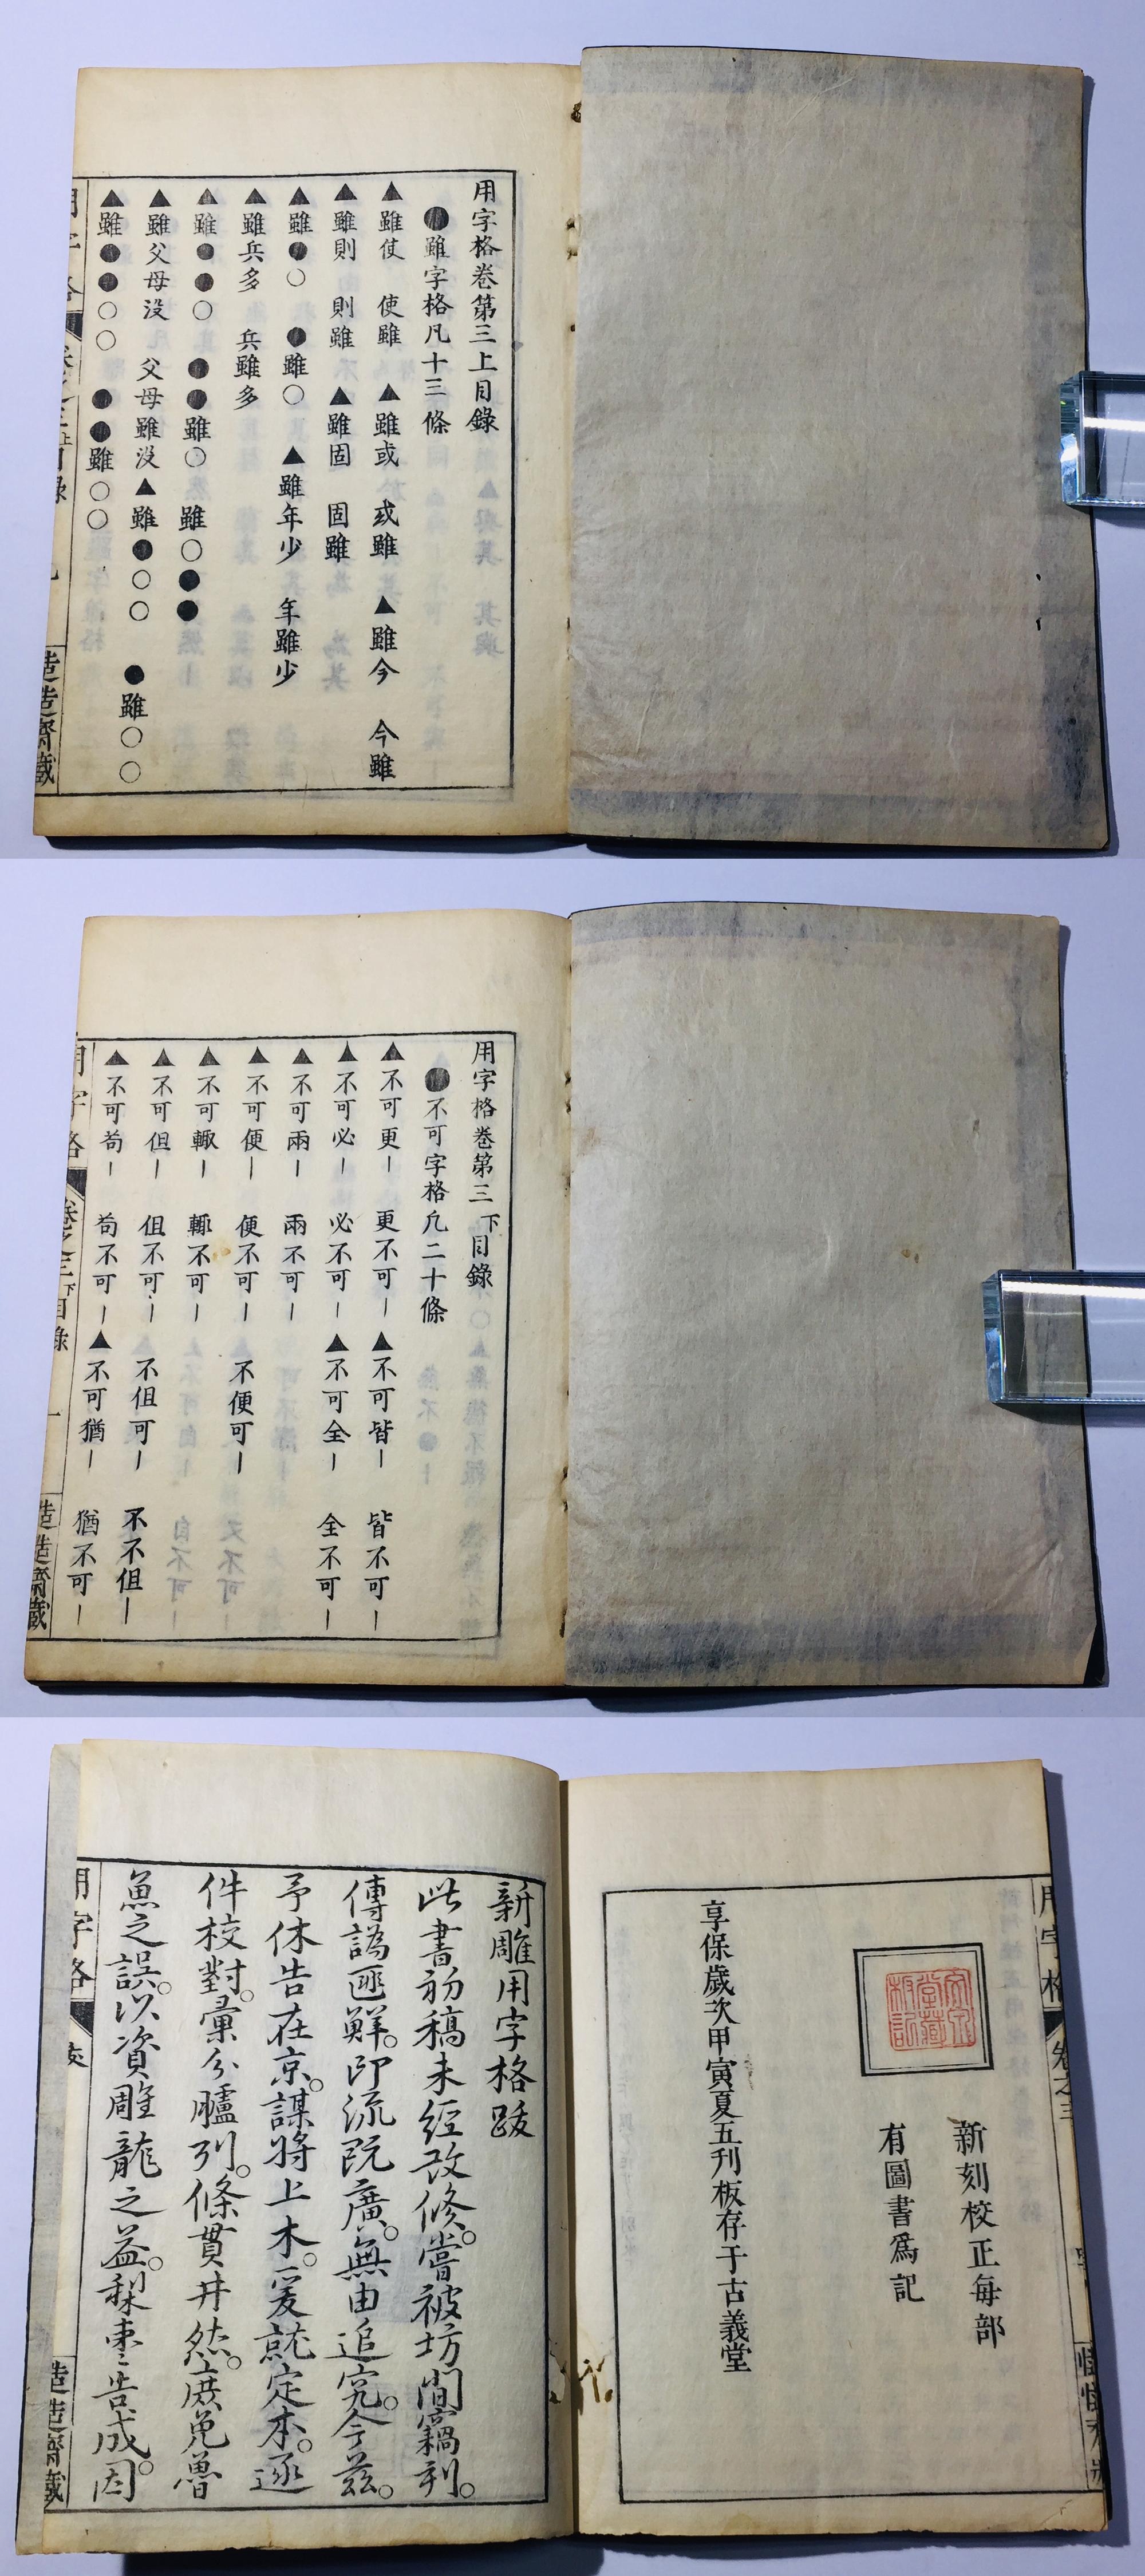 用字格卷第三上目錄
●雖字格凡十三條
▲雖使　使雖　▲雖或　或雖　▲雖今　今雖
▲雖則　則雖　▲雖固　固雖
▲雖●○　●雖○　▲雖年少　年雖少
▲雖兵多　兵雖多
▲雖●●○　●●雖○　雖○●●
▲雖父母沒　父母雖沒▲雖●○○　●雖○○
▲雖●●○○　●●雖○○
用字格卷第三下目錄
●不可字格凡二十條
▲不可更｜　更不可｜▲不可皆｜　皆不可｜
▲不可必｜　必不可｜▲不可全｜　全不可｜
▲不可兩｜　兩不可｜
▲不可便｜　便不可｜　不便可｜
▲不可輙｜　輙不可｜
▲不可但｜　但不可｜　不但可｜　不不但｜
▲不可苟｜　苟不可｜▲不可猶｜　猶不可｜
用字格　卷之三下目錄　一　造造齋藏
新刻校正每部
有圖書爲記
享保歲次甲寅夏五刊板存于古義堂
新雕用字格跋
此書初稿未經改修。嘗被坊間竊刊。
傳譌匪鮮。印流既廣。無由追究。今茲。
予休告在京。謀將上木。爰就定本。逐
件校對。彙分臚列。條貫井然。庶免魯
魚之誤。以資雕龍之益。梨棗告成。因
用字格　造造齋藏